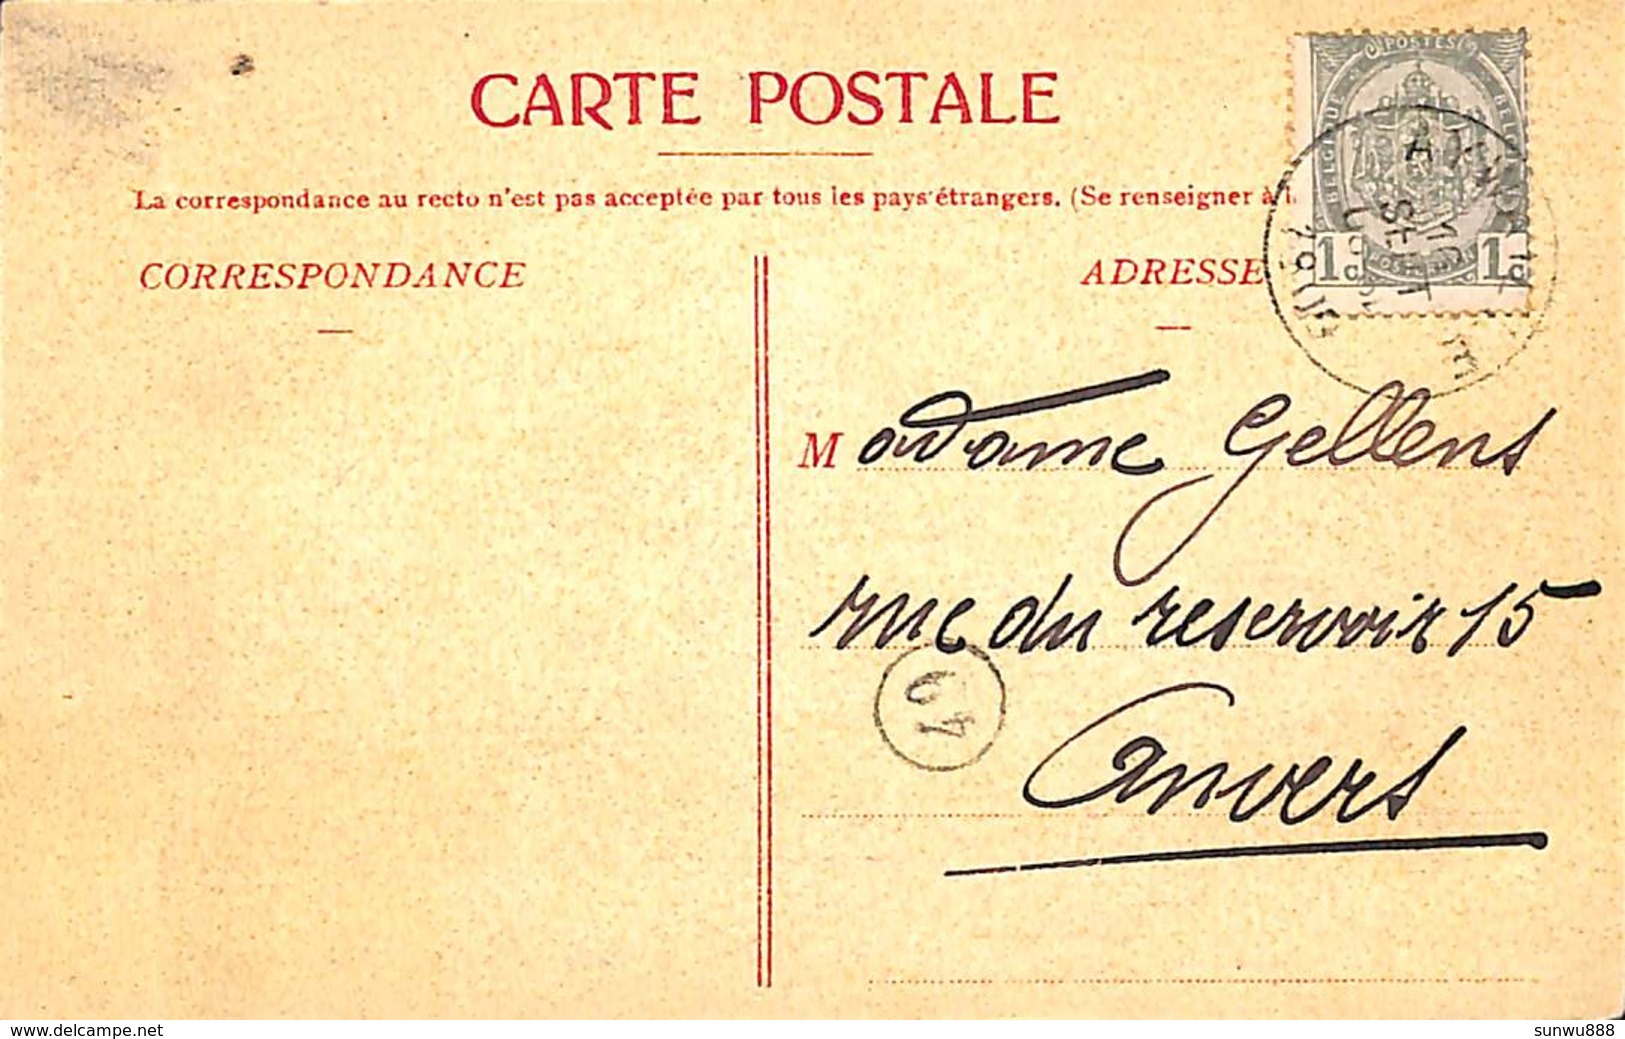 CARTE POSTALE
La correspondance au recto n'est pas acceptée par tous les pays étrangers. (Se renseigner à l
CORRESPONDANCE
ADRESSE
POSTES
BELGIQUE
1 1
SEPT
Madame Gellens
rue du reservoir 15
Anvers
www.delcampe.net
sunwu888